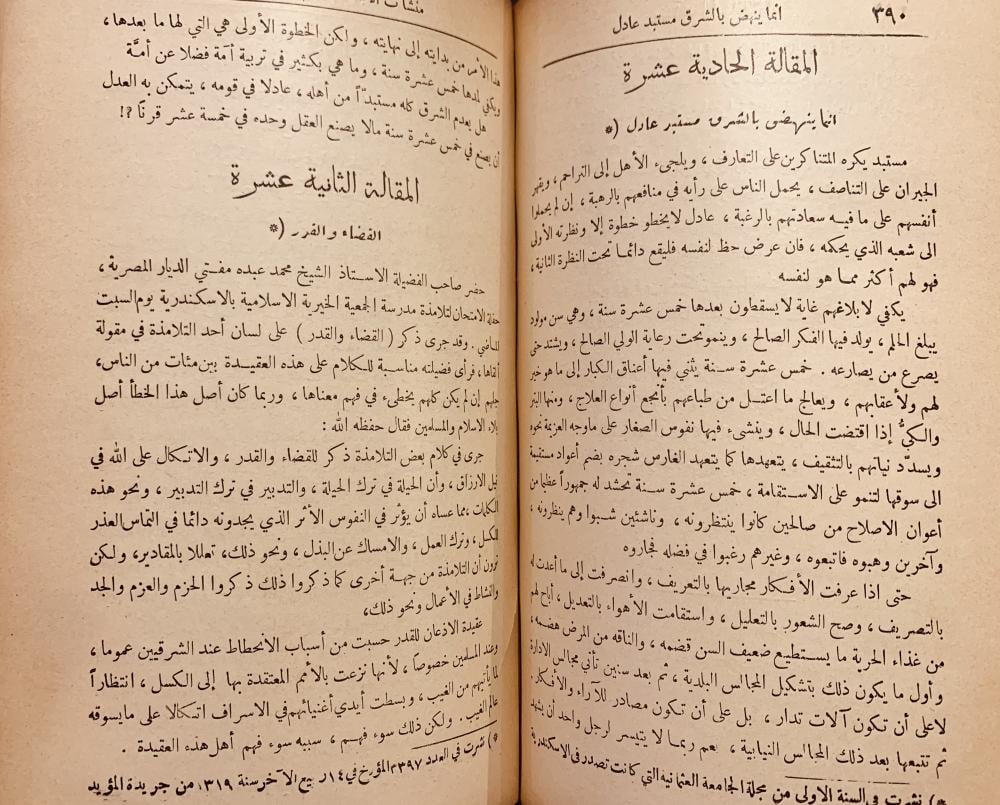 ٣٩٠
انما ينهض بالشرق مستبد عادل
المقالة الحادية عشرة
انما ينهض بالشرق مستبد عادل (*
مستبد يكره المتناكرين على التعارف ، ويلجىء الأهل إلى التراحم ، ويقهر
الجيران على التناصف ، يحمل الناس على رأيه في منافعهم بالرهبة ، إن لم يحملوا
أنفسهم على ما فيه سعادتهم بالرغبة ، عادل لا يخطو خطوة إلا ونظرته الأولى
الى شعبه الذي يحكمه ، فان عرض حظ لنفسه فليقع دائما تحت النظرة الثانية ،
فهو لهم أكثر مما هو لنفسه
يكفي لابلاغهم غاية لا يسقطون بعدها خمس عشرة سنة ، وهي سن مولود
يبلغ الحلم ، يولد فيها الفكر الصالح ، وينمو تحت رعاية الولي الصالح ، ويشتد حتى
يصرع من يصارعه . خمس عشرة سنة يثني فيها أعناق الكبار إلى ما هو خير
لهم ولأعقابهم ، ويعالج ما اعتل من طباعهم بأنجع أنواع العلاج ، ومنها البتر
والكيُّ إذا اقتضت الحال ، وينشىء فيها نفوس الصغار على ما وجه العزيمة نحوه
ويسدّد نياتهم بالتثقيف ، يتعهدها كما يتعهد الغارس شجره بضم أعواد مستقيمة
الى سوقها لتنمو على الاستقامة ، خمس عشرة سنة تحشد له جمهوراً عظيما من
أعوان الاصلاح من صالحين كانوا ينتظرونه ، وناشئين شبوا وهم ينظرونه ،
وآخرين وهبوه فاتبعوه ، وغيرهم رغبوا في فضله فجاروه
حتى اذا عرفت الأفكار مجاريها بالتعريف ، وانصرفت إلى ما أعدت له
بالتصريف ، وصح الشعور بالتعليل ، واستقامت الأهواء بالتعديل ، أباح لهم
من غذاء الحرية ما يستطيع ضعيف السن قضمه ، والناقه من المرض هضمه ،
وأول ما يكون ذلك بتشكيل المجالس البلدية ، ثم بعد سنين تأتي مجالس الادارة
لا على أن تكون آلات تدار ، بل على أن تكون مصادر للآراء والأفكار ،
ثم تتبعها بعد ذلك المجالس النيابية ، نعم ربما لا يتيسر لرجل واحد أن يشهد
*) نشرت في السنة الاولى من مجلة الجامعة العثمانيه التي كانت تصدر في الاسكندرية
منشآت
هذا الأمر من بدايته إلى نهايته ، ولكن الخطوة الأولى هي التي لها ما بعدها ،
ويكفي لمدها خمس عشرة سنة ، وما هي بكثير في تربية أمة فضلا عن أمَّة
هل يعدم الشرق كله مستبدّاً من أهله ، عادلا في قومه ، يتمكن به العدل
أن يصنع في خمس عشرة سنة مالا يصنع العقل وحده في خمسة عشر قرناً ؟!
المقالة الثانية عشرة
القضاء والقدر (*
حضر صاحب الفضيلة الاستاذ الشيخ محمد عبده مفتي الديار المصرية ،
حفلة الامتحان لتلامذة مدرسة الجمعية الخيرية الاسلامية بالاسكندرية يوم السبت
الماضي . وقد جرى ذكر ( القضاء والقدر ) على لسان أحد التلامذة في مقولة
ألقاها ، فرأى فضيلته مناسبة للكلام على هذه العقيدة بين مئات من الناس ،
جلهم إن لم يكن كلهم يخطىء في فهم معناها ، وربما كان أصل هذا الخطأ أصل
بلاء الاسلام والمسلمين فقال حفظه الله :
جرى في كلام بعض التلامذة ذكر للقضاء والقدر ، والاتكال على الله في
نيل الارزاق ، وأن الحيلة في ترك الحيلة ، والتدبير في ترك التدبير ، ونحو هذه
الكلمات ، مما عساه أن يؤثر في النفوس الأثر الذي يجدونه دائما في التماس العذر
للكسل ، وترك العمل ، والامساك عن البذل ، ونحو ذلك ، تعللا بالمقادير ، ولكن
ترون أن التلامذة من جهة أخرى كما ذكروا ذلك ذكروا الحزم والعزم والجد
والنشاط في الأعمال ونحو ذلك ،
عقيدة الاذعان للقدر حسبت من أسباب الانحطاط عند الشرقيين عموما ،
وعند المسلمين خصوصاً ، لأنها نزعت بالأمم المعتقدة بها إلى الكسل ، انتظاراً
لما يأتيهم من الغيب ، وبسطت أيدي أغنيائهم في الاسراف اتكالا على ما يسوقه
عالم الغيب . ولكن ذلك سوء فهم ، سببه سوء فهم أهل هذه العقيدة .
*) نشرت في العدد ٣٩٧ م المؤرخ في ١٤ ربيع الآخر سنة ١٣١٩ من جريدة المؤيد